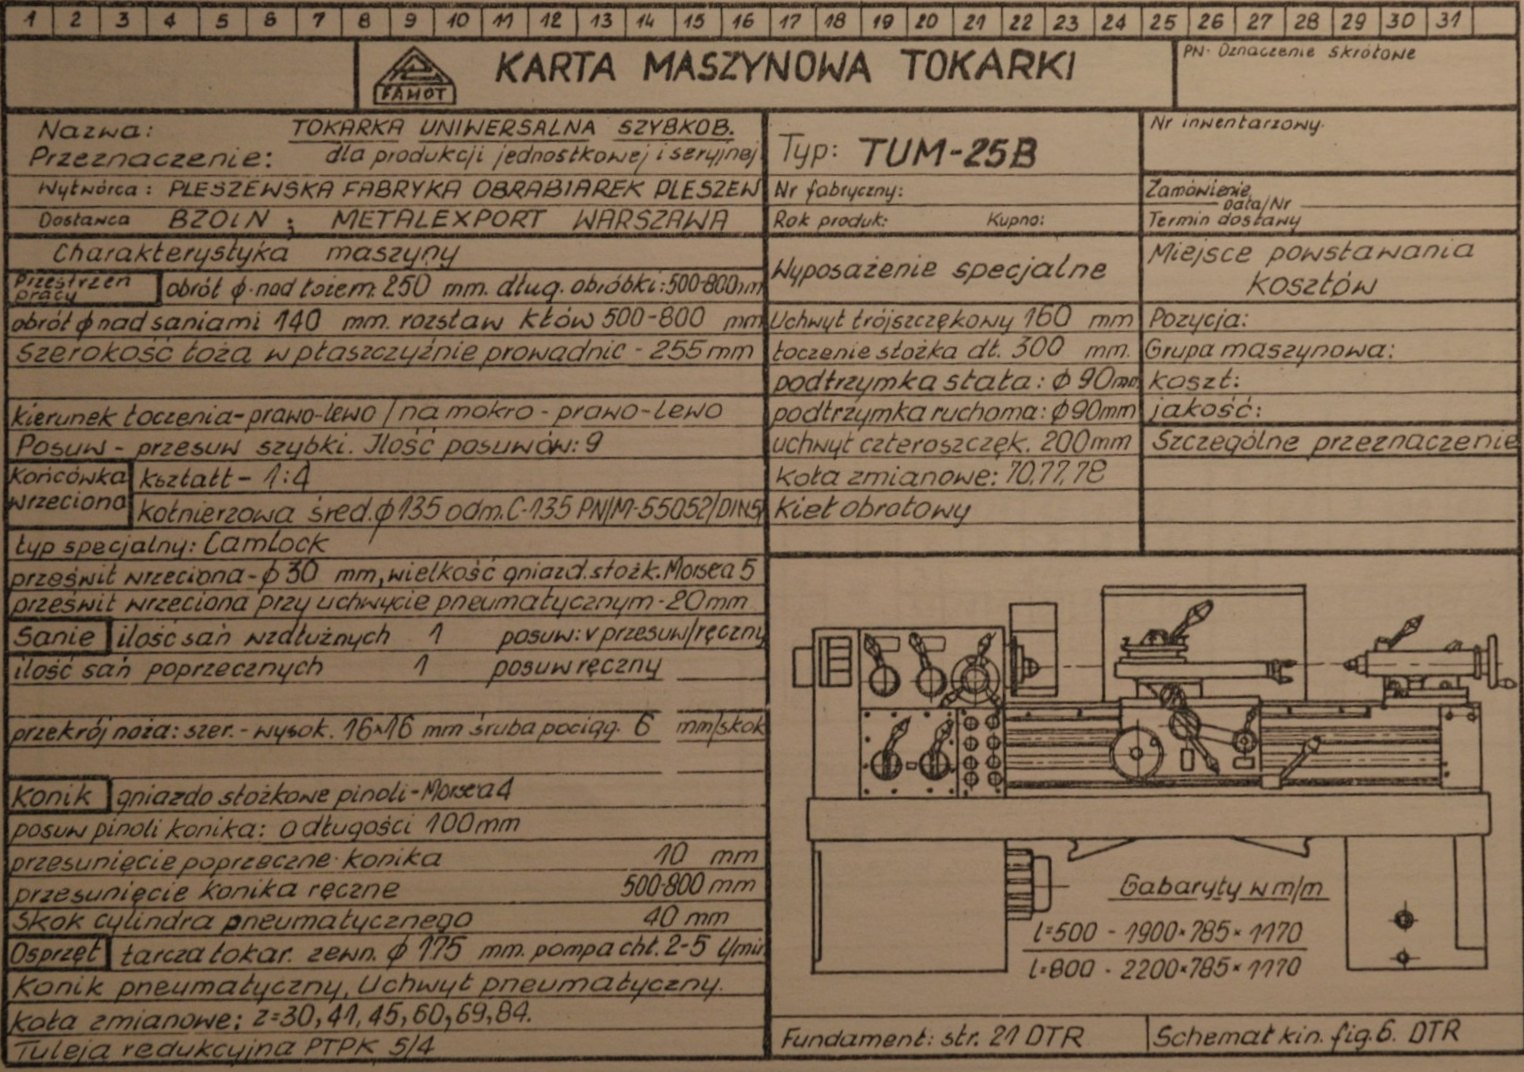 1 2 3 4 5 6 7 8 9 10 11 12 13 14 15 16 17 18 19 20 21 22 23 24 25 26 27 28 29 30 31
FAMOT
KARTA MASZYNOWA TOKARKI
PN- Oznaczenie skrótowe
Nazwa: TOKARKA UNIWERSALNA SZYBKOB.
Przeznaczenie: dla produkcji jednostkowej i seryjnej
Wytwórca: PLESZEWSKA FABRYKA OBRABIAREK PLESZEW
Dostawca BZOiN ; METALEXPORT WARSZAWA
Charakterystyka maszyny
Przestrzeń pracy
obrót φ nad łożem. 250 mm. dług. obróbki: 500-800mm
obrót φ nad saniami 140 mm. rozstaw kłów 500-800 mm
Szerokość łoża w płaszczyźnie prowadnic - 255 mm
kierunek toczenia- prawo-lewo / na mokro - prawo-lewo
Posuw - przesuw szybki. Ilość posuwów: 9
Końcówka wrzeciona
kształt - 1:4
kołnierzowa śred. φ 135 odm. C-135 PN/M-55052/DIN5
typ specjalny: Camlock
prześwit wrzeciona - φ 30 mm, wielkość gniazd. stożk. Morse'a 5
prześwit wrzeciona przy uchwycie pneumatycznym - 20mm
Sanie ilość sań wzdłużnych 1 posuw: v przesuw/ręczny
ilość sań poprzecznych 1 posuw ręczny
przekrój noża: szer. - wysok. 16×16 mm śruba pociąg. 6 mm/skok
Konik gniazdo stożkowe pinoli - Morse'a 4
posuw pinoli konika: o długości 100mm
przesunięcie poprzeczne konika 10 mm
przesunięcie konika ręczne 500-800 mm
Skok cylindra pneumatycznego 40 mm
Osprzęt tarcza tokar. zewn. φ 175 mm. pompa chł. 2-5 l/min
Konik pneumatyczny, Uchwyt pneumatyczny.
koła zmianowe; z=30, 41, 45, 60, 69, 84.
Tuleja redukcyjna PTPK 5/4
Typ: TUM-25B
Nr fabryczny:
Rok produk: Kupno:
Wyposażenie specjalne
Uchwyt trójszczękowy 160 mm
toczenie stożka dł. 300 mm.
podtrzymka stała: φ 90mm
podtrzymka ruchoma: φ 90mm
uchwyt czteroszczęk. 200mm
koła zmianowe: 70,77,78
kieł obrotowy
Nr inwentarzowy.
Zamówienie Data/Nr
Termin dostawy
Miejsce powstawania kosztów
Pozycja:
Grupa maszynowa:
koszt:
jakość:
Szczególne przeznaczenie
Gabaryty w m/m
l=500 - 1900×785×1170
l=800 - 2200×785×1170
Fundament: str. 21 DTR
Schemat kin. fig. 6. DTR